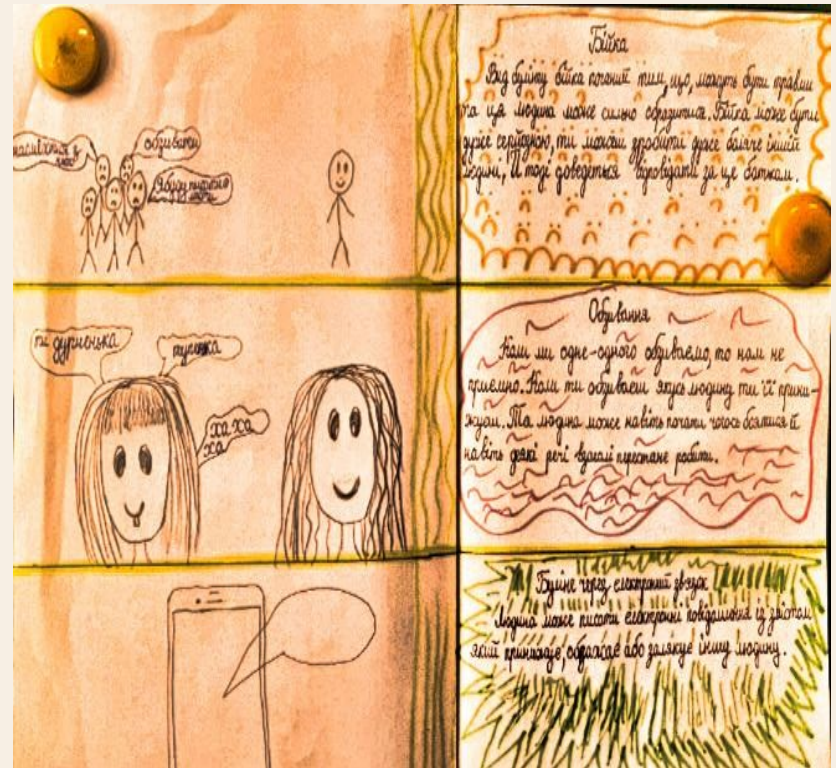 обзивати
Бійка
Від булінгу бійка поганий тим, що, можуть бути травми
та ця людина може сильно образитися. Бійка може бути
дуже серйозною, ти можеш зробити дуже боляче іншій
людині, й тоді доведеться відповідати за це батькам.
ти дурненька
тупенька
ха ха
ха
Обзивання
Коли ми одне-одного обзиваємо, то нам не
приємно. Коли ти обзиваєш якусь людину ти її прини-
жуєш. Та людина може навіть почати чогось боятися й
навіть деякі речі взагалі перестане робити.
Булінг через електронний зв'язок
Людина може писати електронні повідомлення із змістом
який принижує, ображає або залякує іншу людину.